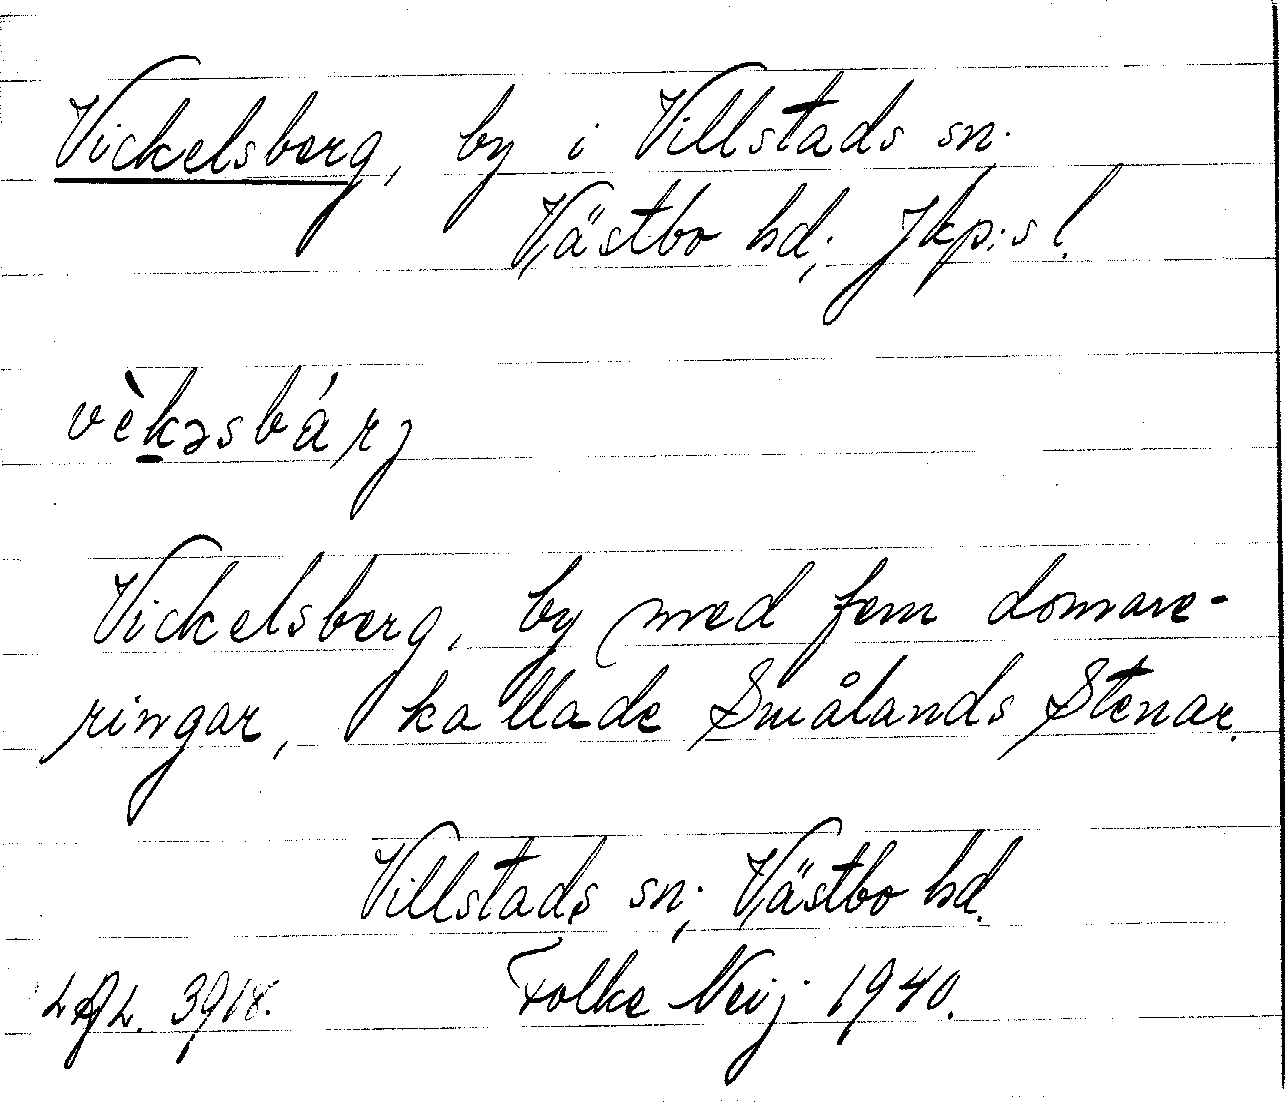 Vickelsberg, by i Villstads sn.
Västbo hd; Jkp:s l.
vèkəsbárj
Vickelsberg, by med fem domare-
ringar, kallade Smålands Stenar.
Villstads sn; Västbo hd.
3918. Folke Neij 1940.